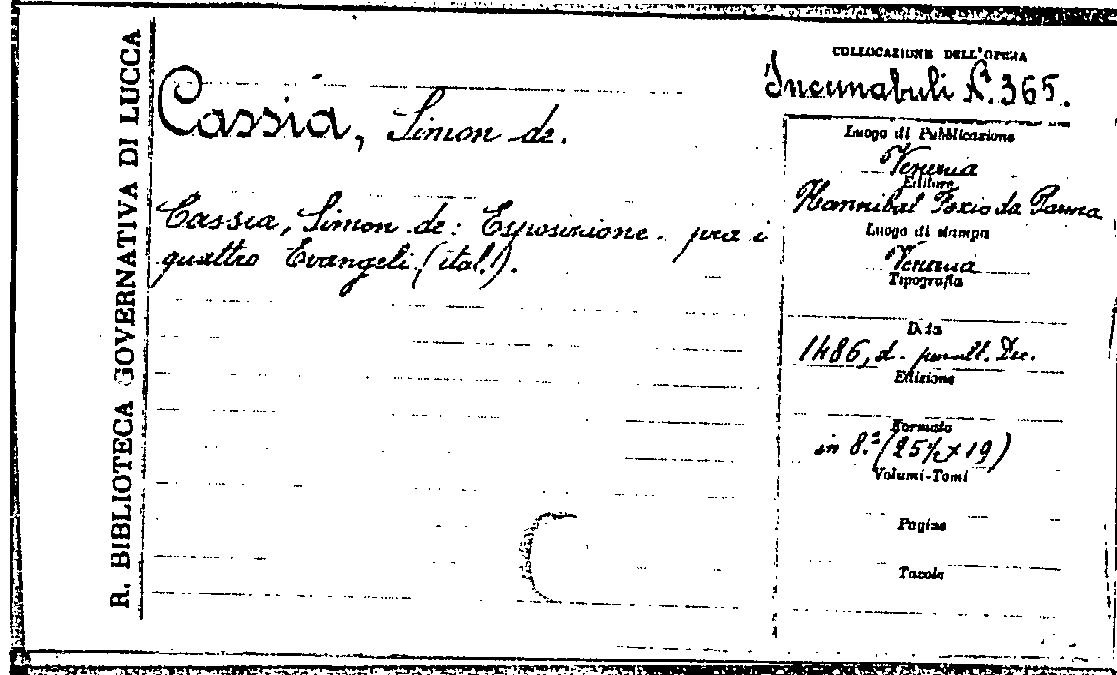 R. BIBLIOTECA GOVERNATIVA DI LUCCA
Cassia, Simon de.
Cassia, Simon de: Esposizione. pra i
quattro Evangeli (ital.!).
COLLOCAZIONE DELL'OPERA
Incunabuli N. 365.
Luogo di Pubblicazione
Venezia
Editore
Hannibal Foxio da Parma
Luogo di stampa
Venezia
Tipografia
Data
1486, d. penult. Dec.
Edizione
Formato
in 8.° (25½ x 19)
Volumi-Tomi
Pagine
Tavole